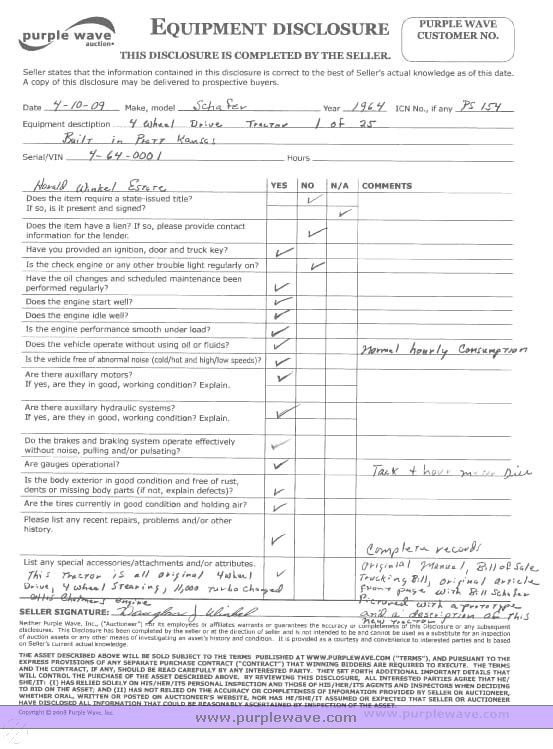 purple wave
auction
EQUIPMENT DISCLOSURE
PURPLE WAVE
CUSTOMER NO.
THIS DISCLOSURE IS COMPLETED BY THE SELLER.
Seller states that the information contained in this disclosure is correct to the best of Seller's actual knowledge as of this date.
A copy of this disclosure may be delivered to prospective buyers.
Date 4-10-09 Make, model Schafer Year 1964 ICN No., if any PS 154
Equipment desctiption 4 Wheel Drive Tractor 1 of 25
Built in Pratt Kansas
Serial/VIN 4-64-0001 Hours
Harold Winkel Estate YES NO N/A COMMENTS
Does the item require a state-issued title?
If so, is it present and signed?
Does the item have a lien? If so, please provide contact
information for the lender.
Have you provided an ignition, door and truck key?
Is the check engine or any other trouble light regularly on?
Have the oil changes and scheduled maintenance been
performed regularly?
Does the engine start well?
Does the engine idle well?
Is the engine performance smooth under load?
Does the vehicle operate without using oil or fluids? Normal hourly Consumption
Is the vehicle free of abnormal noise (cold/hot and high/low speeds)?
Are there auxillary motors?
If yes, are they in good, working condition? Explain.
Are there auxillary hydraulic systems?
If yes, are they in good, working condition? Explain.
Do the brakes and braking system operate effectively
without noise, pulling and/or pulsating?
Are gauges operational? Tack + hour meter
Is the body exterior in good condition and free of rust,
dents or missing body parts (if not, explain defects)?
Are the tires currently in good condition and holding air?
Please list any recent repairs, problems and/or other
history.
Complete records
List any special accessories/attachments and/or attributes. Original Manual, Bill of Sale
This Tractor is all original 4 wheel Trucking Bill, original article
Drive, 4 wheel Stearing, 11,000 Turbo Charged front page with Bill Schafer
Chalmers engine Pictured with a prototype
and a description on this
SELLER SIGNATURE: new tractor
Neither Purple Wave, Inc., ("Auctioneer") nor its employees or affiliates warrants or guarantees the accuracy or completeness of this Disclosure or any subsequent
disclosures. This Disclosure has been completed by the seller or at the direction of seller and is not intended to be and cannot be used as a substitute for an inspection
of auction assets or any other means of investigating an asset's history and condition. It is provided as a courtesy and convenience to interested parties and is based
on Seller's current actual knowledge.
THE ASSET DESCRIBED ABOVE WILL BE SOLD SUBJECT TO THE TERMS PUBLISHED AT WWW.PURPLEWAVE.COM ("TERMS"), AND PURSUANT TO THE
EXPRESS PROVISIONS OF ANY SEPARATE PURCHASE CONTRACT ("CONTRACT") THAT WINNING BIDDERS ARE REQUIRED TO EXECUTE. THE TERMS
AND THE CONTRACT, IF ANY, SHOULD BE READ CAREFULLY BY ANY INTERESTED PARTY. THEY SET FORTH ADDITIONAL IMPORTANT DETAILS THAT
WILL CONTROL THE PURCHASE OF THE ASSET DESCRIBED ABOVE. BY REVIEWING THIS DISCLOSURE, ALL INTERESTED PARTIES AGREE THAT HE/
SHE/IT: (I) HAS RELIED SOLELY ON HIS/HER/ITS PERSONAL INSPECTION AND THOSE OF HIS/HER/ITS AGENTS AND INSPECTORS WHEN DECIDING
TO BID ON THE ASSET; AND (II) HAS NOT RELIED ON THE ACCURACY OR COMPLETENESS OF INFORMATION PROVIDED BY SELLER OR AUCTIONEER,
WHETHER ORAL, WRITTEN OR POSTED ON AUCTIONEER'S WEBSITE, NOR HAS HE/SHE/IT ASSUMED OR EXPECTED THAT SELLER OR AUCTIONEER
HAVE DISCLOSED ALL INFORMATION THAT COULD BE REASONABLY ASCERTAINED BY INSPECTION OF THE ASSET.
Copyright © 2008 Purple Wave, Inc.
www.purplewave.com
www.purplewave.com